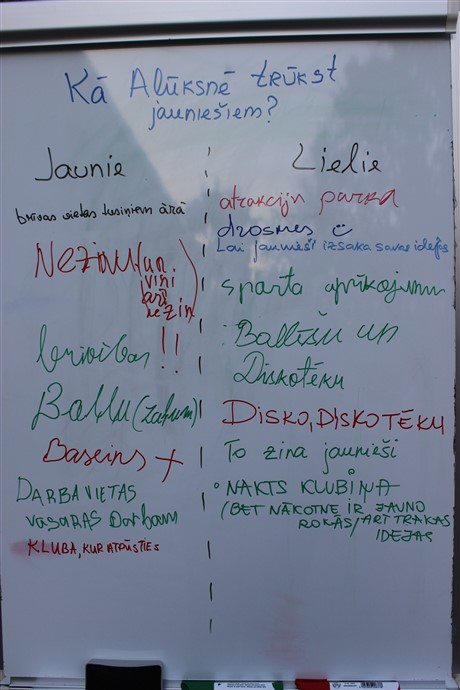 Kā Alūksnē trūkst
jauniešiem?
Jaunie
brīvas vietas tusiņiem ārā
Nezinu (un
viņi
arī
nezin)
brīvības !!
Baļļu (zaļum)
Baseins +
DARBAVIETAS
VASARAS Darbam
KLUBA, KUR ATPŪSTIES
Lielie
atrakciju parka
drosmes
Lai jaunieši izsaka savas idejas
sporta aprīkojumu
Ballīšu un
Diskotēku
DISKO, DISKOTĒKU
To zina jaunieši
NAKTS KLUBIŅA
(BET NĀKOTNE IR JAUNO
ROKĀS/ARĪ TRAKAS
IDEJAS